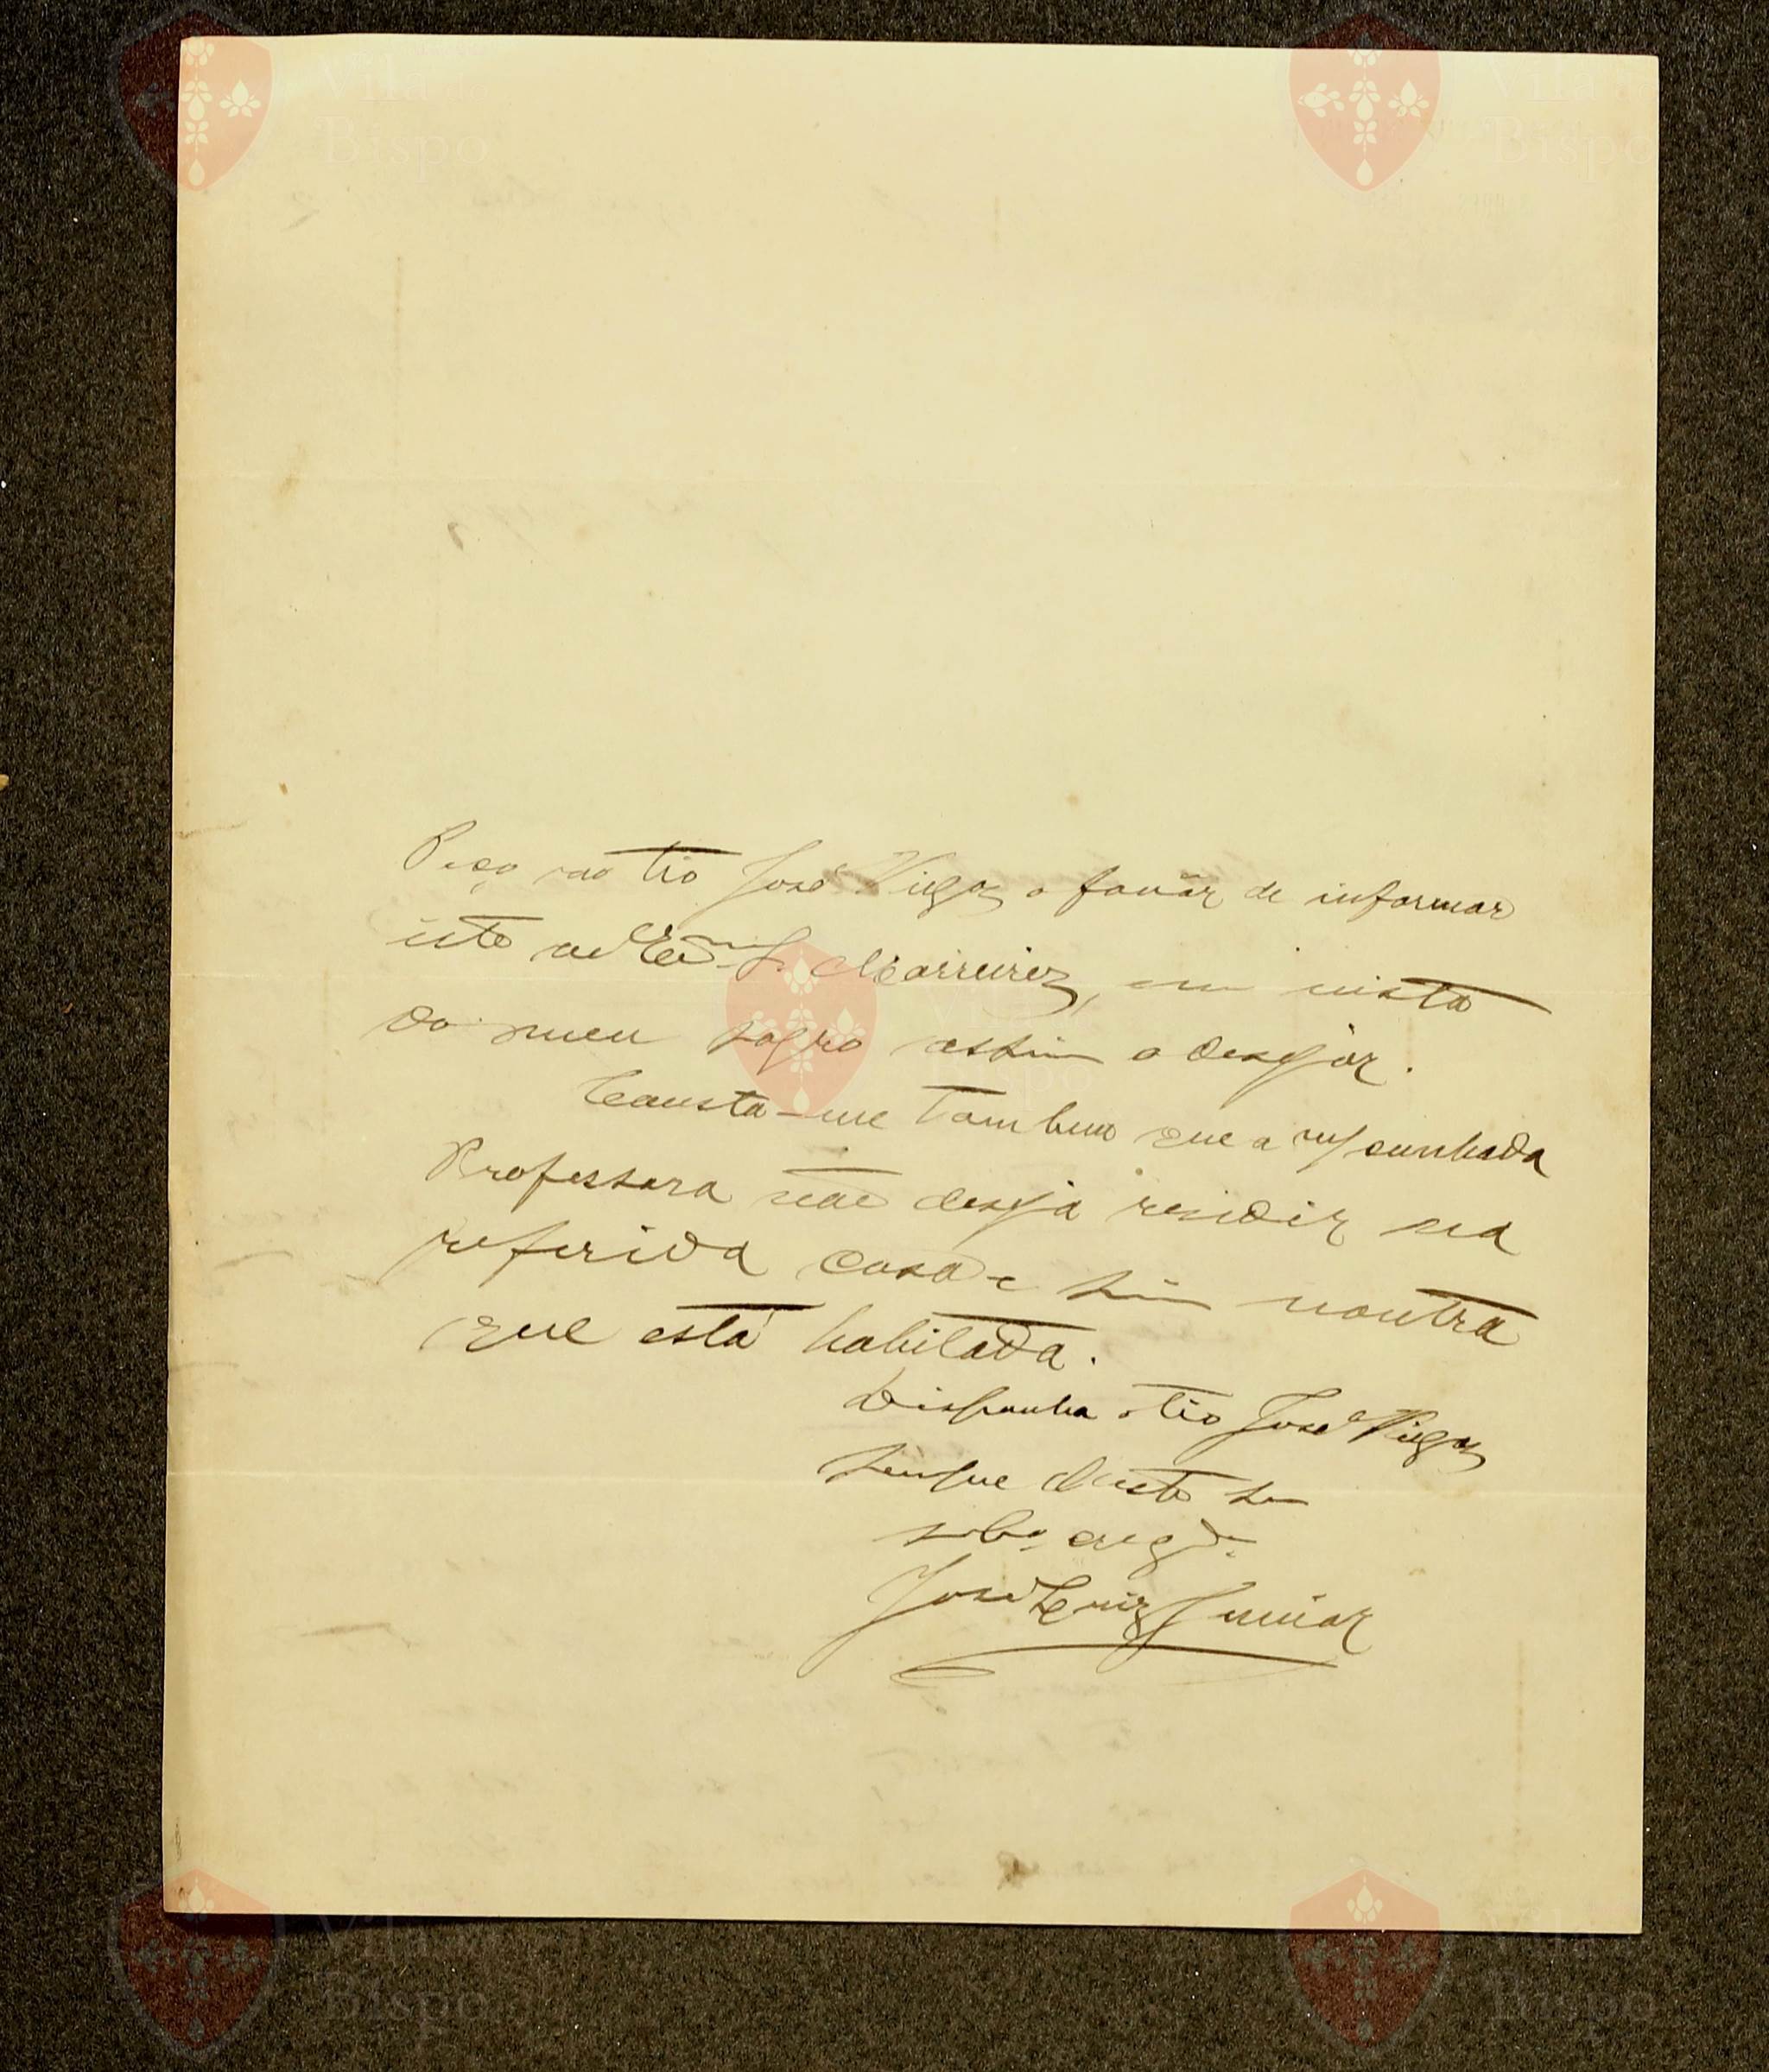 Vila do
Bispo
Vila do
Bispo
Peço ao tio José Viegas o favôr de informar
isto ao Ex.mo Sr. Marreiros, em vista
do meu sogro assim o desejár.
Consta-me tambem que a m/ cunhada
Professora não deseja residir na
referida casa e sim noutra
que está habitada.
Disponha o tio José Viegas
sempre deste seu
sobr.
José Luiz Junior
Vila do
Bispo
Vila do
Bispo
Vila do
Bispo